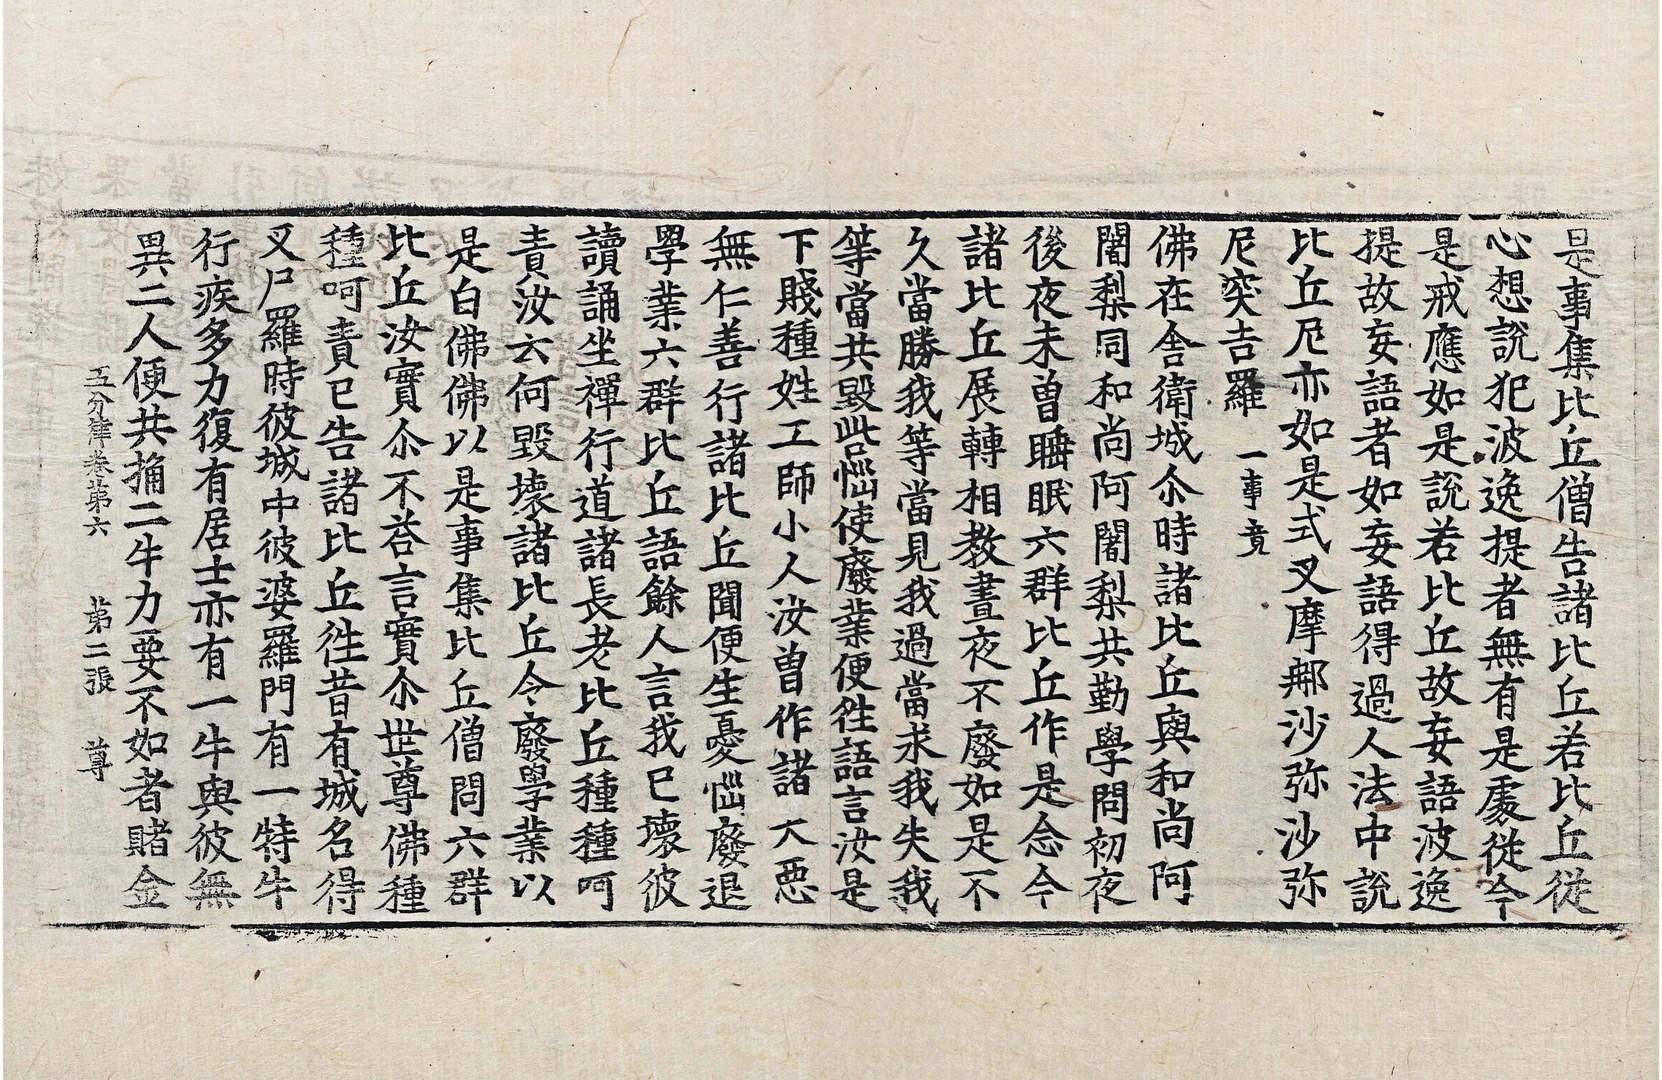 是事集比丘僧告諸比丘若比丘從
心想說犯波逸提者無有是處從今
是戒應如是說若比丘故妄語波逸
提故妄語者如妄語得過人法中說
比丘尼亦如是式叉摩那沙弥沙弥
尼突吉羅 一事竟
佛在舍衛城尒時諸比丘與和尚阿
闍梨同和尚阿闍梨共勤學問初夜
後夜未曾睡眠六群比丘作是念今
諸比丘展轉相教晝夜不廢如是不
久當勝我等當見我過當求我失我
等當共毀呰惱使廢業便徃語言汝是
下賤種姓工師小人汝曽作諸大惡
無仁善行諸比丘聞便生憂惱廢退
學業六群比丘語餘人言我已壞彼
讀誦坐禪行道諸長老比丘種種呵
責汝云何毀壞諸比丘令廢學業以
是白佛佛以是事集比丘僧問六群
比丘汝實尒不荅言實尒世尊佛種
種呵責已告諸比丘徃昔有城名得
叉尸羅時彼城中彼婆羅門有一特牛
行疾多力復有居士亦有一牛與彼無
異二人便共捔二牛力要不如者賭金
五分律卷第六 第二張 尊